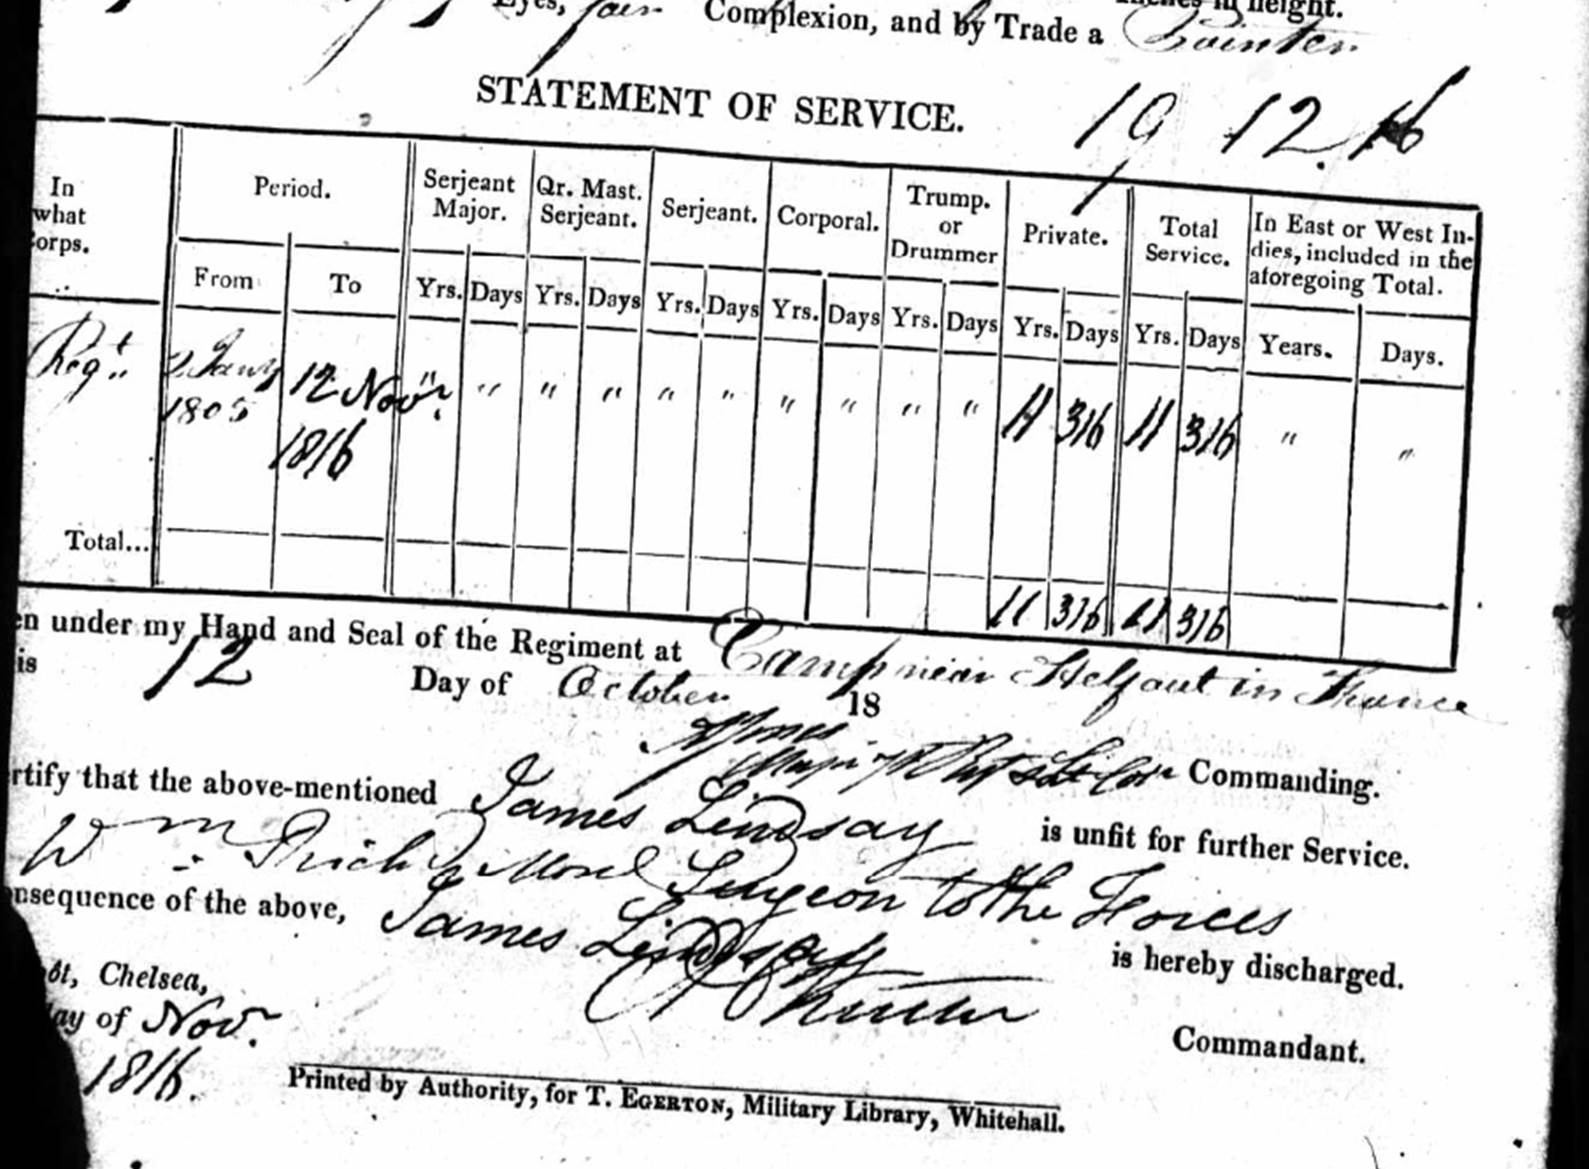 Eyes, fair Complexion, and by Trade a
inches in height.
STATEMENT OF SERVICE.
19 12. 16
In what orps.
Period.
Serjeant Major.
Qr. Mast. Serjeant.
Serjeant.
Corporal.
Trump. or Drummer
Private.
Total Service.
In East or West Indies, included in the aforegoing Total.
From To Yrs. Days Yrs. Days Yrs. Days Yrs. Days Yrs. Days Yrs. Days Yrs. Days Years. Days.
Regt. 2 Jany 1805 12 Novr. 1816 " " " " " " " " " " 11 316 11 316 " "
Total... 11 316 11 316
en under my Hand and Seal of the Regiment at Camp near Helfaut in France
is 12 Day of October 18
Commanding.
rtify that the above-mentioned James Lindsay is unfit for further Service.
Wm. Surgeon to the Forces
onsequence of the above, James Lindsay is hereby discharged.
ôt, Chelsea,
ay of Novr.
1816.
Commandant.
Printed by Authority, for T. EGERTON, Military Library, Whitehall.